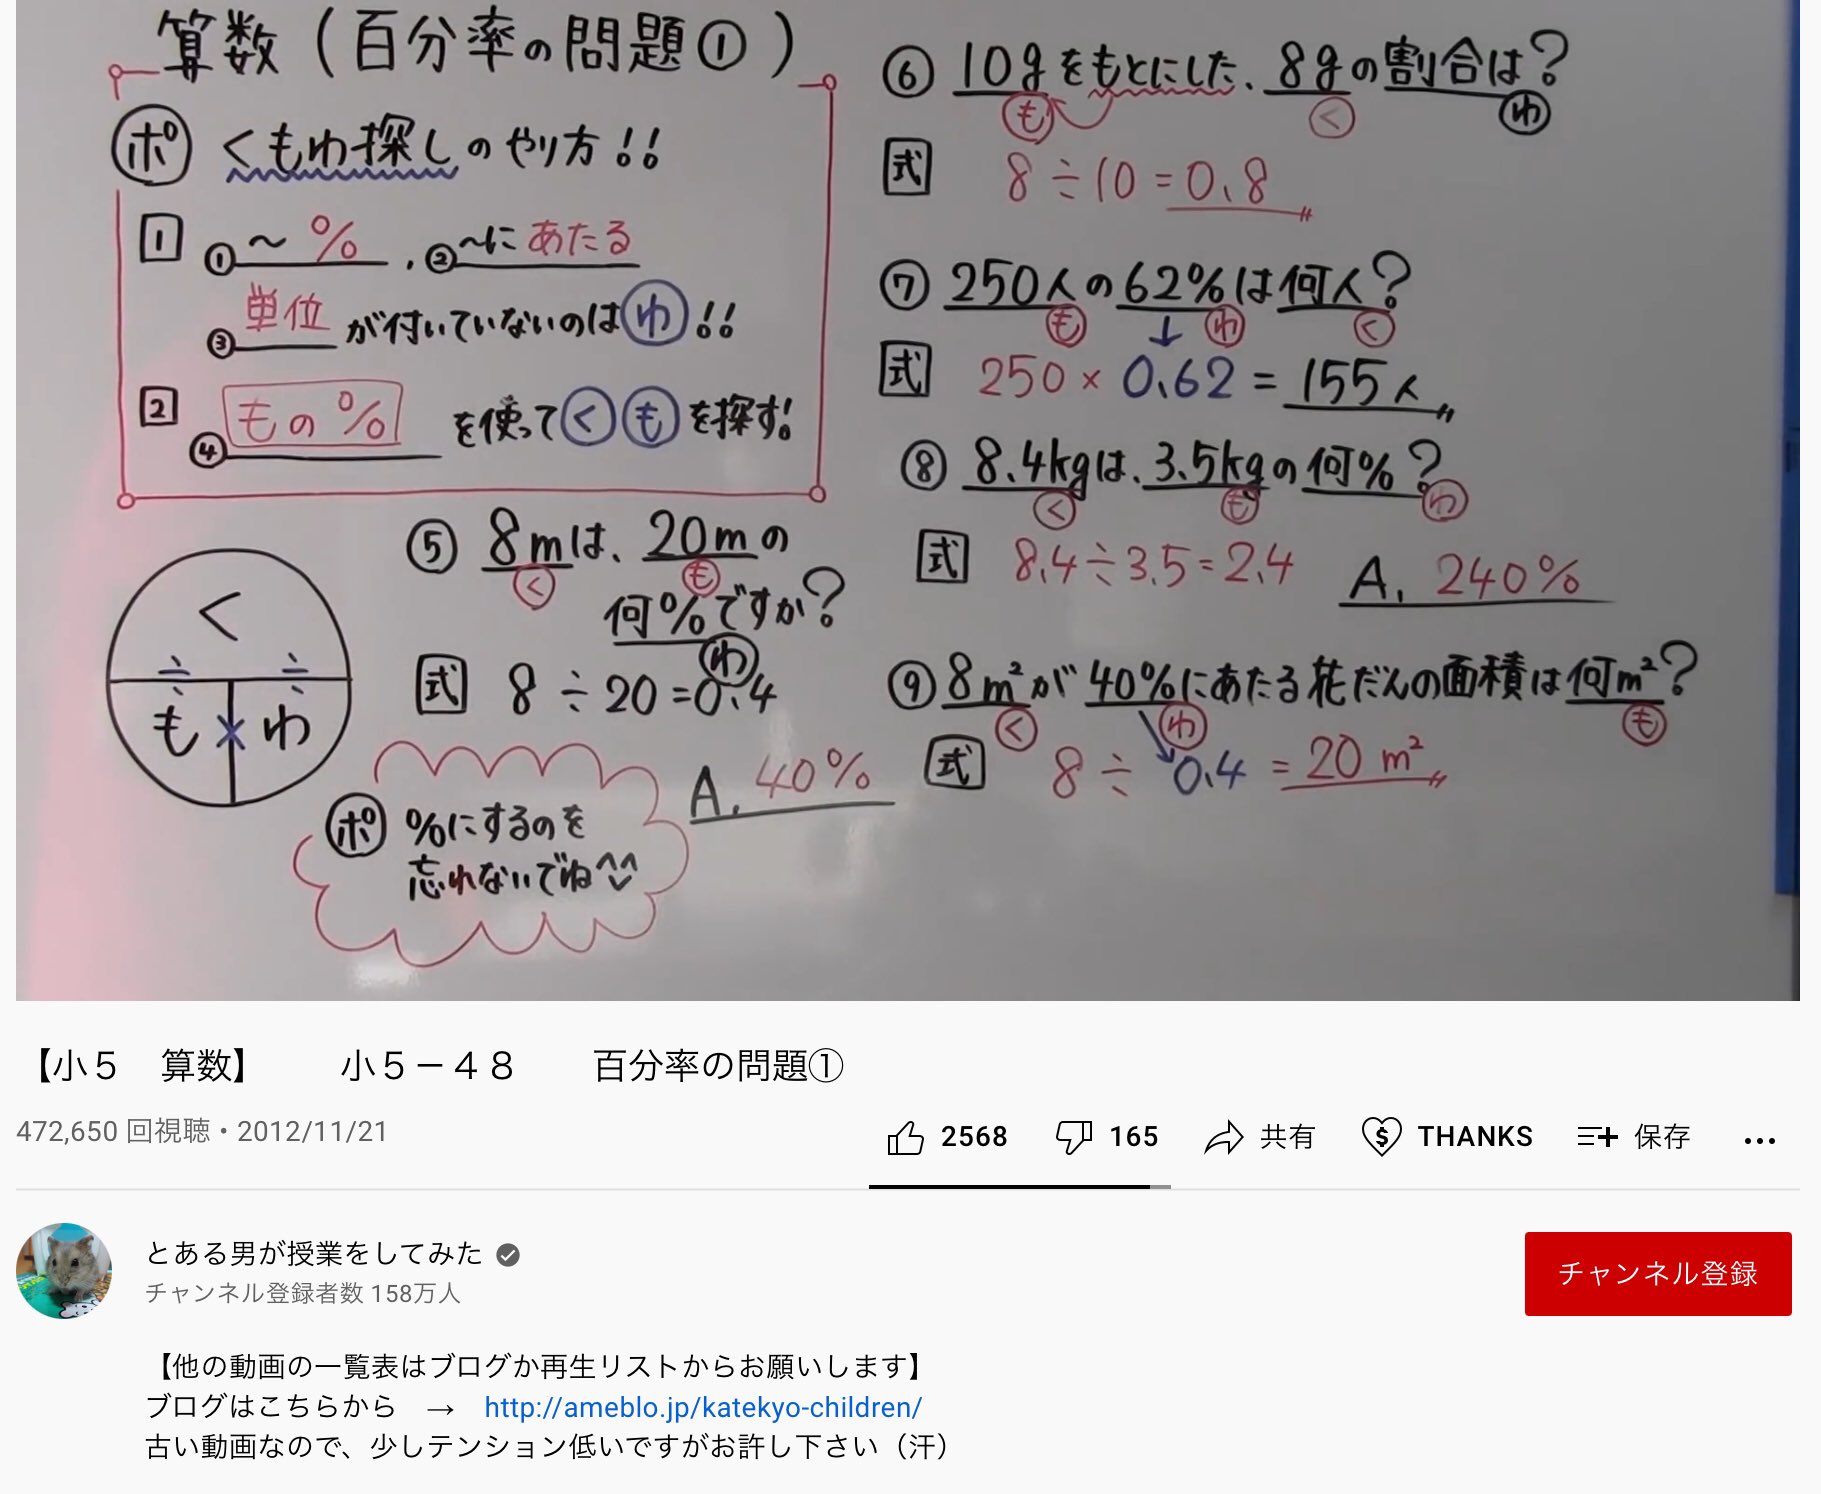 算数（百分率の問題①）
ポ くもわ探しのやり方!!
1 ①～％，②～にあたる
③単位が付いていないのはわ!!
2 ④もの％を使ってくもを探す!
く
÷ ÷
も×わ
⑤ 8mは、20mの
く も
何％ですか?
わ
式 8÷20=0.4
A. 40％
ポ ％にするのを
忘れないでね^^
⑥ 10gをもとにした、8gの割合は?
も く わ
式 8÷10=0.8
⑦ 250人の62％は何人?
も ↓ わ く
式 250×0.62=155人
⑧ 8.4kgは、3.5kgの何％?
く も わ
式 8.4÷3.5=2.4 A. 240％
⑨ 8m²が40％にあたる花だんの面積は何m²?
く わ も
式 8÷0.4=20m²
【小５　算数】　　小５－４８　　百分率の問題①
472,650 回視聴・2012/11/21
2568 165 共有 THANKS 保存 …
とある男が授業をしてみた
チャンネル登録者数 158万人
チャンネル登録
【他の動画の一覧表はブログか再生リストからお願いします】
ブログはこちらから　→　http://ameblo.jp/katekyo-children/
古い動画なので、少しテンション低いですがお許し下さい（汗）